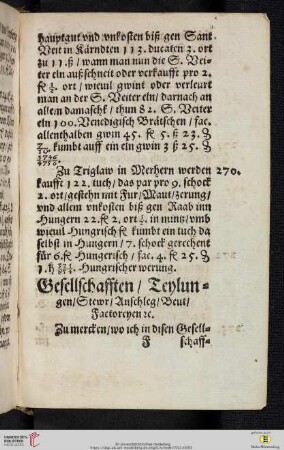 hauptgut vnd vnkosten biß gen Sant
Veit in Kärndten 113. ducaten 3. ort
zu 11. ß / wann man nun die S. Vei-
ter ein außschneit oder verkaufft pro 2.
ort / wieuil gwint oder verleurt
man an der S. Veiter ein / darnach an
allen damaschk / thun 82. S. Veiter
ein 100. Venedigisch Brätschen / fac.
allenthalben gwin 45. 5. ß 23.
kumbt auff ein ein gwin 3 ß 25.
Zu Triglaw in Merhern werden
270.
kaufft 122. tuch / das par pro 9. schock
2. ort / gesteht mit Fur / Maut / zerung /
vnd allem vnkosten biß gen Raab inn
Hungern 22. 2. ort in müng / vmb
wieuil Hungrisch kumbt ein tuch da
selbst in Hungern / 7. schock gerechent
für 6. Hungerisch / fac. 4. 25.
1. Hungrischer werung.
Gesellschafften / Teylun-
gen / Stewr / Anschleg / Beut /
Factoreyen ꝛc.
Zu mercken / wo ich in disen Gesell-
F schaff-